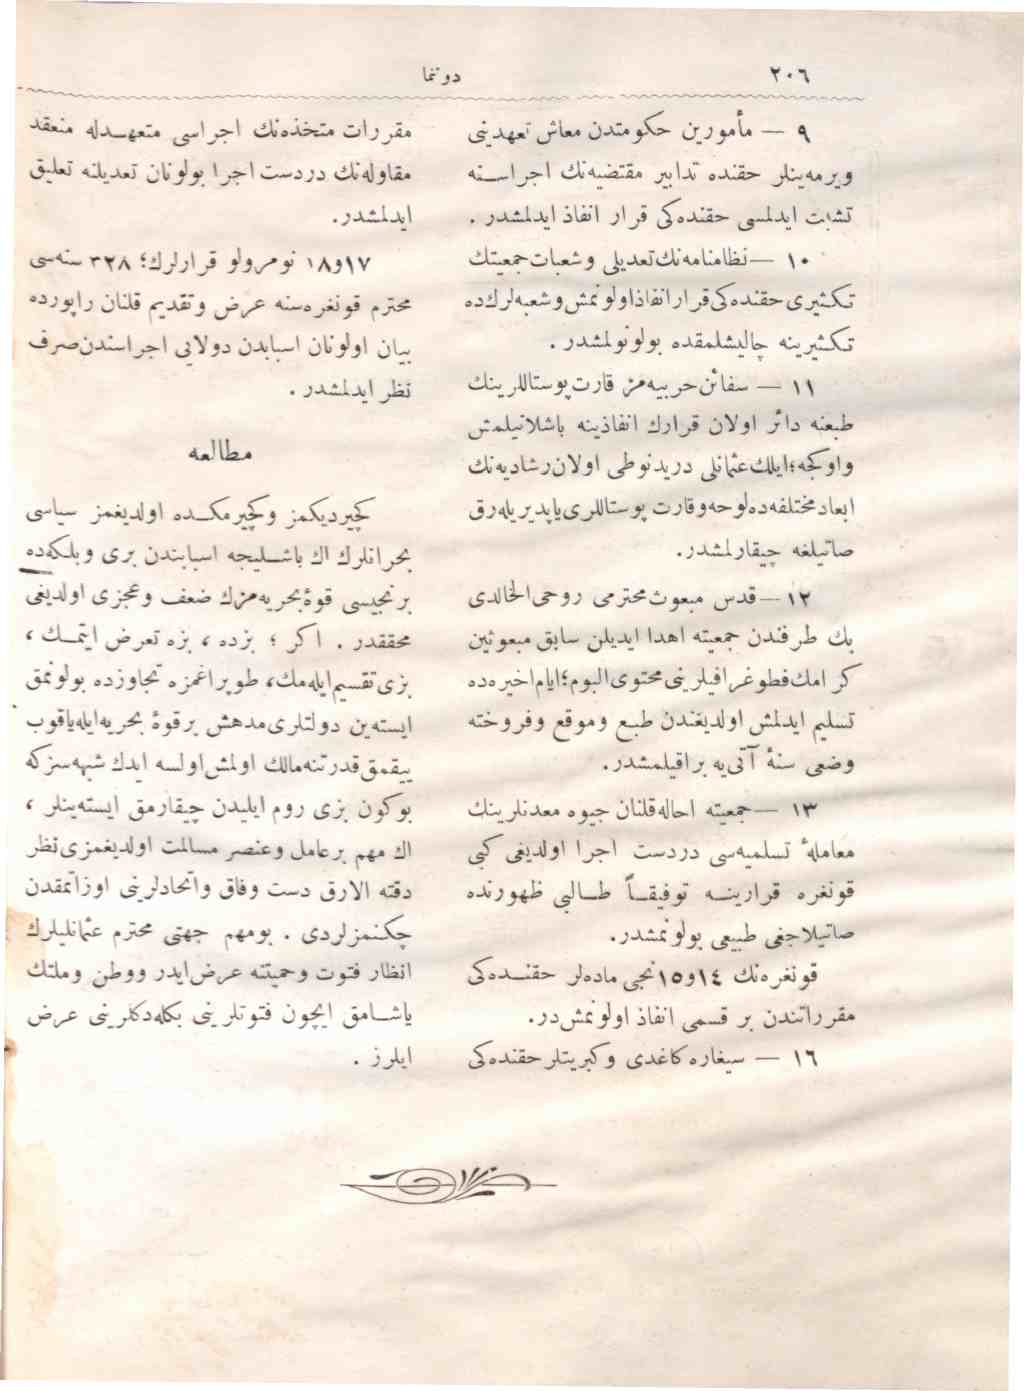 ٢٠٦
دوننما
٩ — مأمورین حكومتدن معاش تعهدینی
ویرمه‌ینلر حقنده تدابیر مقتضیه‌نك اجراسـنه
تشبث ایدلمسی حقنده‌كی قرار انفاذ ایدلمشدر .
١٠ — نظامنامه‌نك تعدیلی وشعبات جمعیتك
تكثیری حقنده‌كی قرار انفاذ اولونمش وشعبه‌لرك ده
تكثیرینه چالیشلمقده بولونولمشدر .
١١ — سفائن حربیه‌مزك قارت پوستاللرینك
طبعنه دائر اولان قرارك انفاذینه باشلاتیلمش
واوكجه؛ ایلك عثمانلی دریدنوطی اولان رشادیه‌نك
ابعاد مختلفه‌ده لوحه وقارت پوستاللری یاپدیریله‌رق
صاتیلغه چیقارلمشدر.
١٢ — قدس مبعوث محترمی روحی الخالدی
بك طرفندن جمعیته اهدا ایدیلن سابق مبعوثین
كرامك فطوغرافیلرینی محتوی البوم؛ ایام اخیره‌ده
تسلیم ایدلمش اولدیغندن طبـع وموقع وفروخته
وضعی سنهٔ آتی‌یه براقیلمشدر.
١٣ — جمعیته احاله قلنان جیوه معدنلرینك
معاملهٔ تسلمیه‌سی دردست اجرا اولدیغی كبی
قونغره قرارینـه توفیقـاً طـالبی ظهورنده
صاتیلاجغی طبیعی بولونمشدر.
قونغره‌نك ١٤و١٥نجی ماده‌لر حقنـده‌كی
مقرراتندن بر قسمی انفاذ اولونمش‌در.
١٦ — سیغاره كاغدی وكبریتلر حقنده‌كی
مقررات متخذه‌نك اجراسی متعهـدله منعقد
مقاوله‌نك دردست اجرا بولونان تعدیلنه تعلیق
ایدلمشدر.
١٧و١٨ نومرولو قرارلرك؛ ٣٢٨ سنه‌سی
محترم قونغره‌سنه عرض وتقدیم قلنان راپورده
بیان اولونان اسبابدن دولایی اجراسندن صرف
نظر ایدلمشدر .
مطالعه
كچیردیكمز وكچیرمكـده اولدیغمز سیاسی
بحرانلرك اك باشـلیجه اسبابندن بری وبلكه‌ده
برنجیسی قوهٔ بحریه‌مزك ضعف وعجزی اولدیغی
محققدر . اكر ؛ بزده ، بزه تعرض ایتمـك ،
بزی تقسیم ایله‌مك، طوپراغمزه تجاوزده بولونمق
ایسته‌ین دولتلری مدهش برقوهٔ بحریه ایله یاقوب
ییقمق قدرتنه مالك اولمش اولسه ایدك شبهه‌سزكه
بوكون بزی روم ایلیدن چیقارمق ایسته‌ینلر ،
اك مهم برعامل وعنصر مسالمت اولدیغمزی نظر
دقته الارق دست وفاق واتحادلرینی اوزاتمقدن
چكنمزلردی . بومهم جهتی محترم عثمانلیلرك
انظار فتوت وحمیتنه عرض ایدر ووطن وملتك
یاشـامق ایچون فتوتلرینی بكله‌دكلرینی عرض
ایلرز .